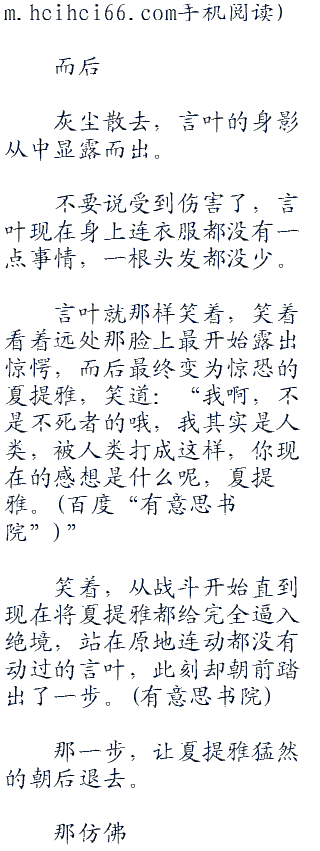 m.hcihci66.com手机阅读)
而后
灰尘散去，言叶的身影
从中显露而出。
不要说受到伤害了，言
叶现在身上连衣服都没有一
点事情，一根头发都没少。
言叶就那样笑着，笑着
看着远处那脸上最开始露出
惊愕，而后最终变为惊恐的
夏提雅，笑道：“我啊，不
是不死者的哦，我其实是人
类，被人类打成这样，你现
在的感想是什么呢，夏提
雅。(百度“有意思书
院”)”
笑着，从战斗开始直到
现在将夏提雅都给完全逼入
绝境，站在原地连动都没有
动过的言叶，此刻却朝前踏
出了一步。(有意思书院)
那一步，让夏提雅猛然
的朝后退去。
那仿佛